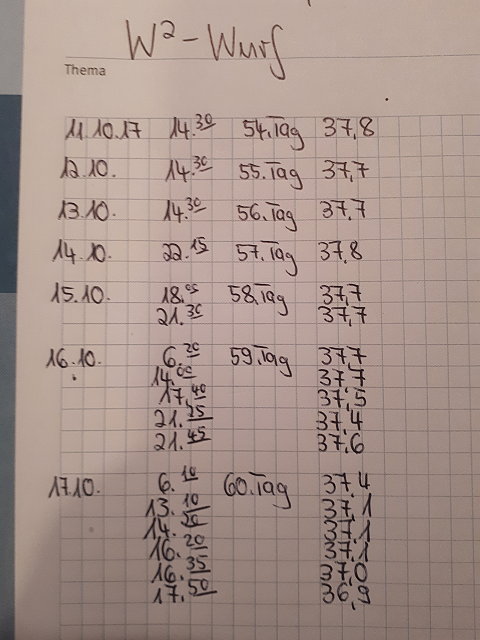 W²-Wurf
Thema
11.10.17 14.30 54.Tag 37,8
12.10. 14.30 55.Tag 37,7
13.10. 14.30 56.Tag 37,7
14.10. 22.15 57.Tag 37,8
15.10. 18.05 58.Tag 37,7
21.30 37,7
16.10. 6.20 59.Tag 37,7
14.00 37,7
17.40 37,5
21.25 37,4
21.45 37,6
17.10. 6.10 60.Tag 37,4
13.10 37,1
14.20 37,1
16.20 37,1
16.35 37,0
17.50 36,9